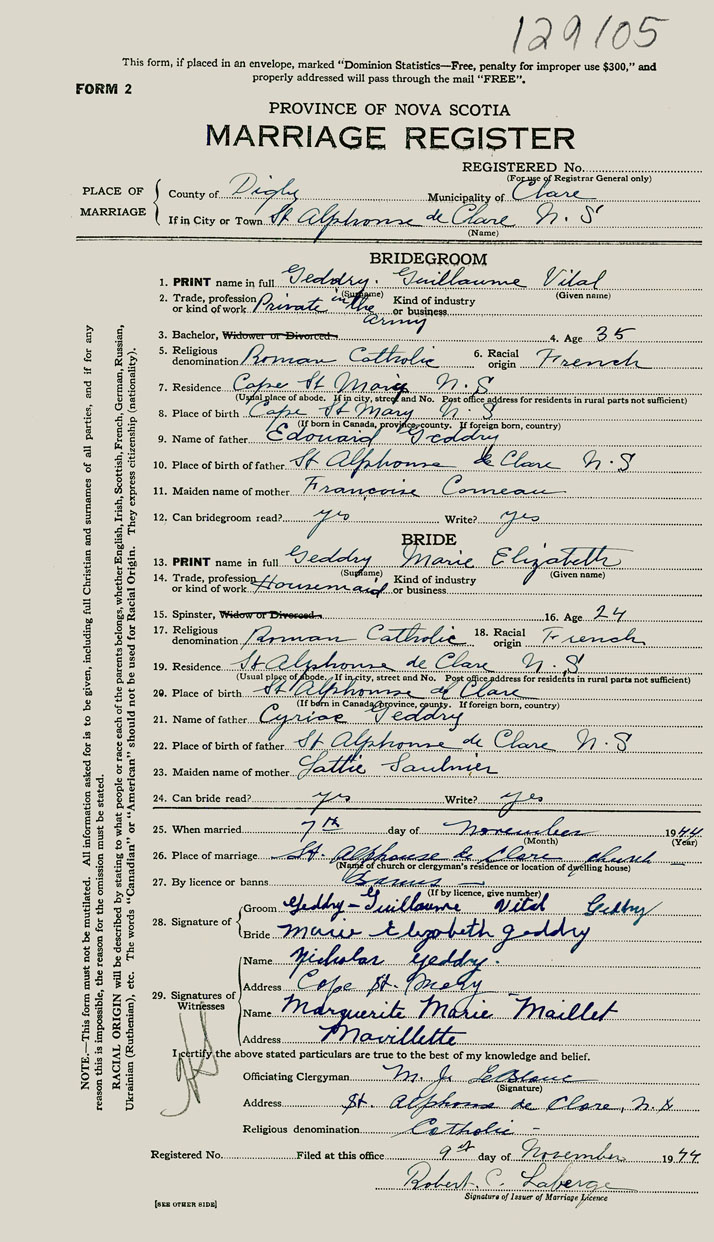 129105
This form, if placed in an envelope, marked “Dominion Statistics—Free, penalty for improper use $300,” and
properly addressed will pass through the mail “FREE”.
FORM 2
PROVINCE OF NOVA SCOTIA
MARRIAGE REGISTER
REGISTERED No.
(For use of Registrar General only)
PLACE OF MARRIAGE
County of Digby Municipality of Clare
If in City or Town St Alphonse de Clare N. S
(Name)
BRIDEGROOM
1. PRINT name in full Geddry. Guillaume Vital
(Surname) (Given name)
2. Trade, profession or kind of work Private in the army Kind of industry or business
3. Bachelor, Widower or Divorced 4. Age 35
5. Religious denomination Roman Catholic 6. Racial origin French
7. Residence Cape St Mary N. S
(Usual place of abode. If in city, street and No. Post office address for residents in rural parts not sufficient)
8. Place of birth Cape St Mary N. S
(If born in Canada, province, county. If foreign born, country)
9. Name of father Edouard Geddry
10. Place of birth of father St Alphonse de Clare N. S
11. Maiden name of mother Françoise Comeau
12. Can bridegroom read? yes Write? yes
BRIDE
13. PRINT name in full Geddry Marie Elizabeth
(Surname) (Given name)
14. Trade, profession or kind of work Housemaid Kind of industry or business
15. Spinster, Widow or Divorced 16. Age 24
17. Religious denomination Roman Catholic 18. Racial origin French
19. Residence St Alphonse de Clare N. S
(Usual place of abode. If in city, street and No. Post office address for residents in rural parts not sufficient)
20. Place of birth St Alphonse de Clare
(If born in Canada, province, county. If foreign born, country)
21. Name of father Cyriac Geddry
22. Place of birth of father St Alphonse de Clare N. S
23. Maiden name of mother Lattie Saulnier
24. Can bride read? yes Write? yes
25. When married 7th day of November 1944
(Month) (Year)
26. Place of marriage St Alphonse de Clare church
(Name of church or clergyman's residence or location of dwelling house)
27. By licence or banns Banns
(If by licence, give number)
28. Signature of
Groom Geddry - Guillaume Vital Geddry
Bride Marie Elizabeth Geddry
29. Signatures of Witnesses
Name Nicholas Geddry.
Address Cape St. Mary
Name Marguerite Marie Maillet
Address Mavillette
I certify the above stated particulars are true to the best of my knowledge and belief.
Officiating Clergyman M. J. LeBlanc
(Signature)
Address St. Alphonse de Clare, N. S
Religious denomination Catholic -
Registered No. Filed at this office 9th day of November 1944
Robert. C. Laberge
Signature of Issuer of Marriage Licence
[SEE OTHER SIDE]
NOTE.—This form must not be mutilated. All information asked for is to be given, including full Christian and surnames of all parties, and if for any
reason this is impossible, the reason for the omission must be stated.
RACIAL ORIGIN will be described by stating to what people or race each of the parents belongs, whether English, Irish, Scottish, French, German, Russian,
Ukrainian (Ruthenian), etc. The words “Canadian” or “American” should not be used for Racial Origin. They express citizenship (nationality).